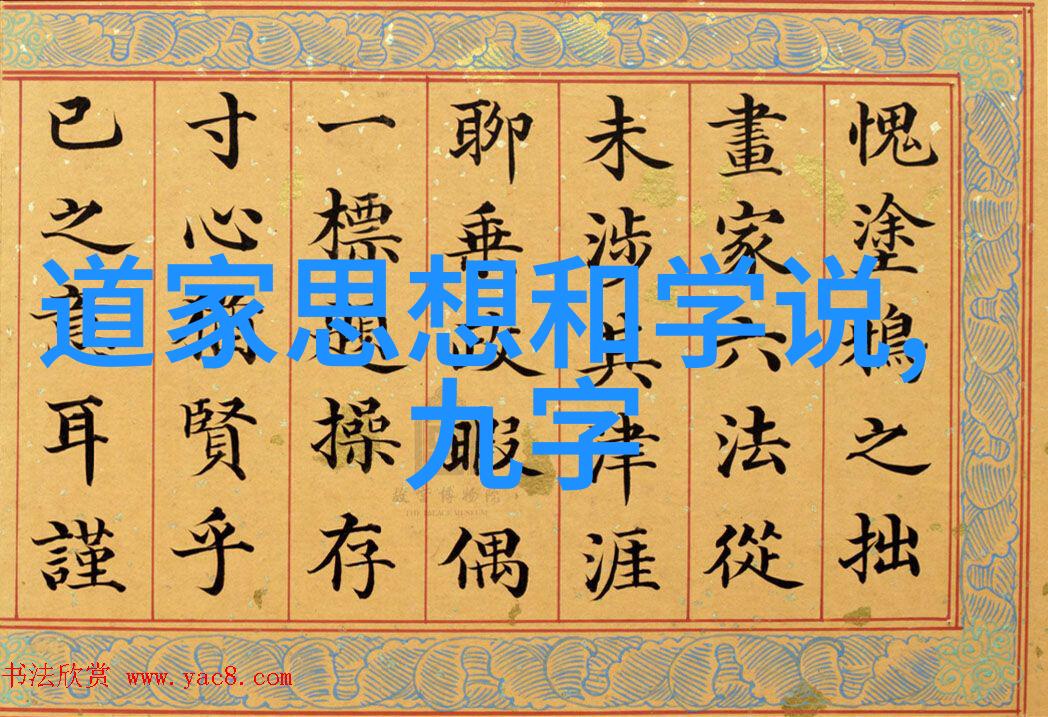 愧塗鴉之拙
畫家六法從
未涉其津涯
聊乘政暇偶
一標題操存
寸心賢乎
已之意耳謹
道家思想和学说,
九字
故宫博物院
THE PALACE MUSEUM
书法欣赏 www.yac8.com